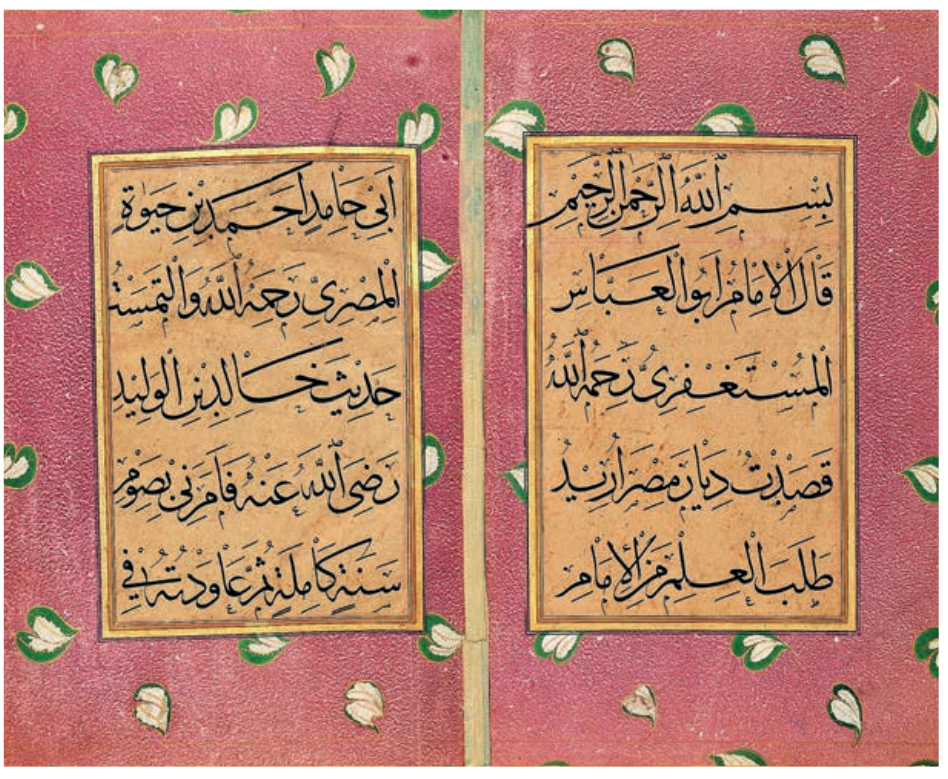 بِسْمِ اللّٰهِ الرَّحْمٰنِ الرَّحِيْمِ
قَالَ الْاِمَامُ اَبُو الْعَبَّاسِ
الْمُسْتَغْفِرِىُّ رَحِمَهُ اللّٰهُ
قَصَدْتُ دِيَارَ مِصْرَ اُرِيْدُ
طَلَبَ الْعِلْمِ مِنَ الْاِمَامِ
اَبِىْ حَامِدٍ اَحْمَدَ بْنِ حَيٰوةِ
الْمِصْرِىِّ رَحِمَهُ اللّٰهُ وَالْتَمَسْتُ
حَدِيْثَ خَالِدِ بْنِ الْوَلِيْدِ
رَضِىَ اللّٰهُ عَنْهُ فَاَمَرَنِىْ بِصَوْمِ
سَنَةٍ كَامِلَةٍ ثُمَّ عَاوَدْتُهُ فِىْ